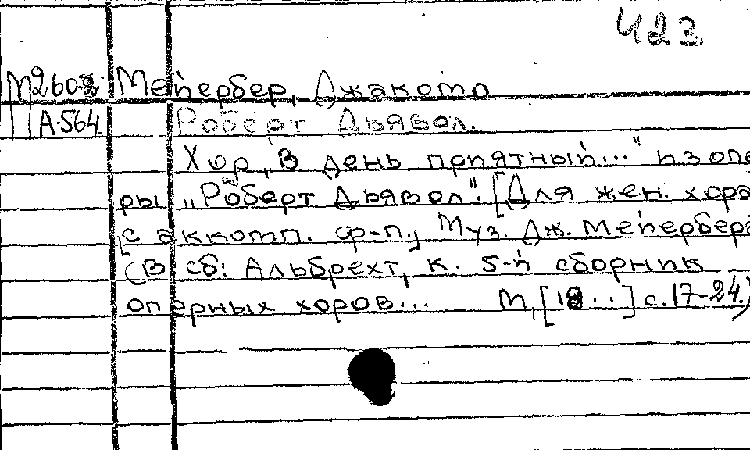 423
М2603 Мейербер, Джакомо
А-564 Роберт Дьявол.
Хор „В день приятный..." из опе
ры „Роберт Дьявол". [Для жен. хора
с аккомп. ф-п., Муз. Дж. Мейербера
(В сб: Альбрехт, К. 5-й сборник
оперных хоров... М, [18..] с.17-24)